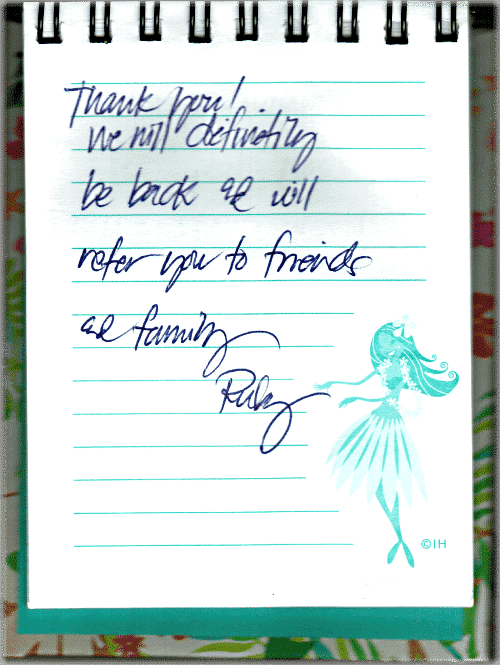 Thank you!
We will definitily
be back and will
refer you to friends
and family
Ruby
©IH